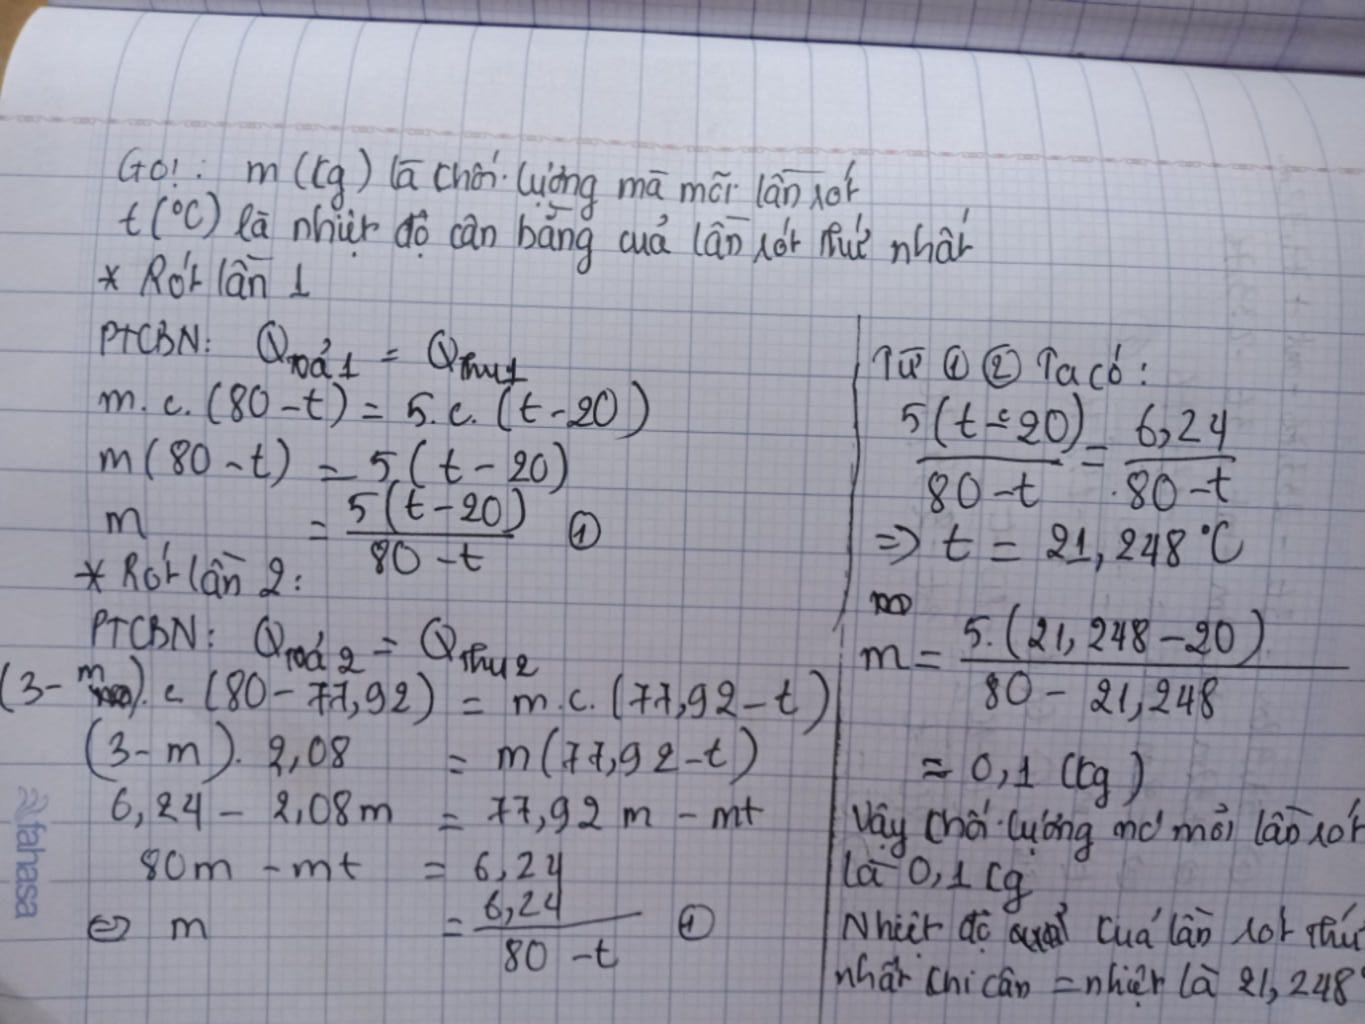 Gọi: m (kg) là khối lượng mà mỗi lần rót
t (°C) là nhiệt độ cân bằng cuả lần rót thứ nhất
* Rót lần 1
PTCBN: Qtoả1 = Qthu1
m.c.(80-t) = 5.c.(t-20)
m(80-t) = 5(t-20)
m = 5(t-20)/80-t ①
* Rót lần 2:
PTCBN: Qtoả2 = Qthu2
(3-m).c (80-77,92) = m.c.(77,92-t)
(3-m). 2,08 = m(77,92-t)
6,24 - 2,08m = 77,92m - mt
80m - mt = 6,24
⇔ m = 6,24/80-t ①
Từ ① ② Ta có:
5(t-20)/80-t = 6,24/80-t
=> t = 21,248°C
m = 5.(21,248-20)/80-21,248
= 0,1 (kg)
Vậy khối lượng mà mỗi lần rót
là 0,1 kg
Nhiệt độ cuả lần rót thứ
nhất khi cân = nhiệt là 21,248°
fahasa